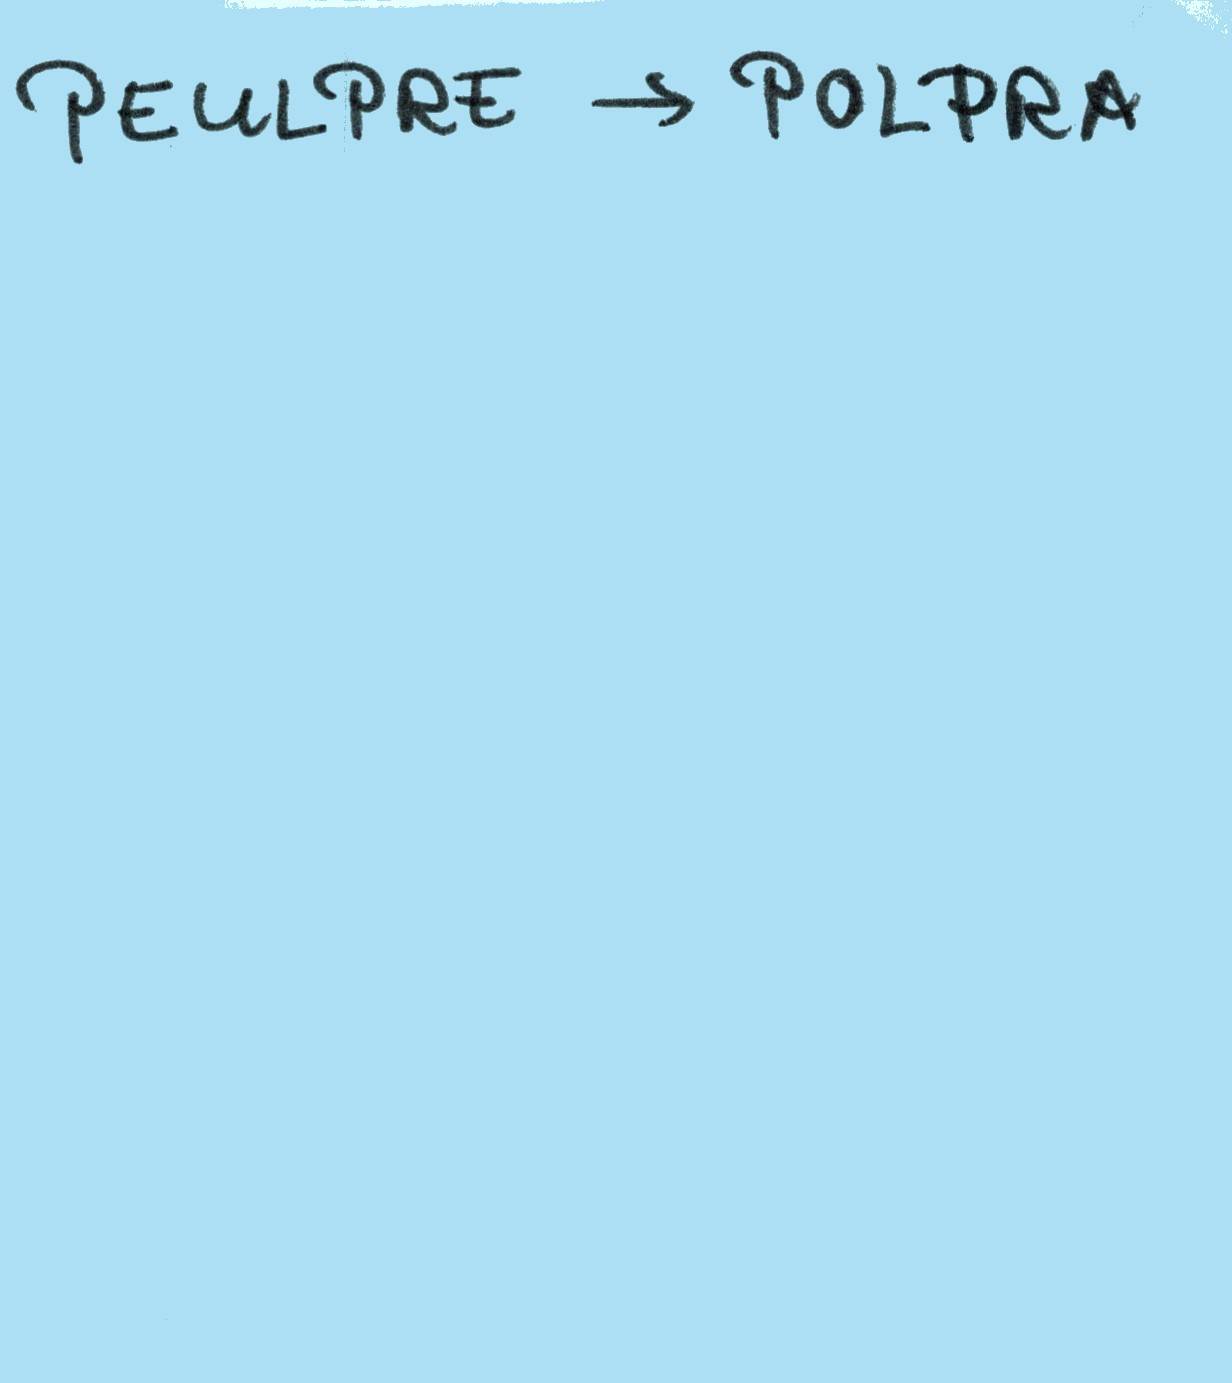 PEULPRE → POLPRA